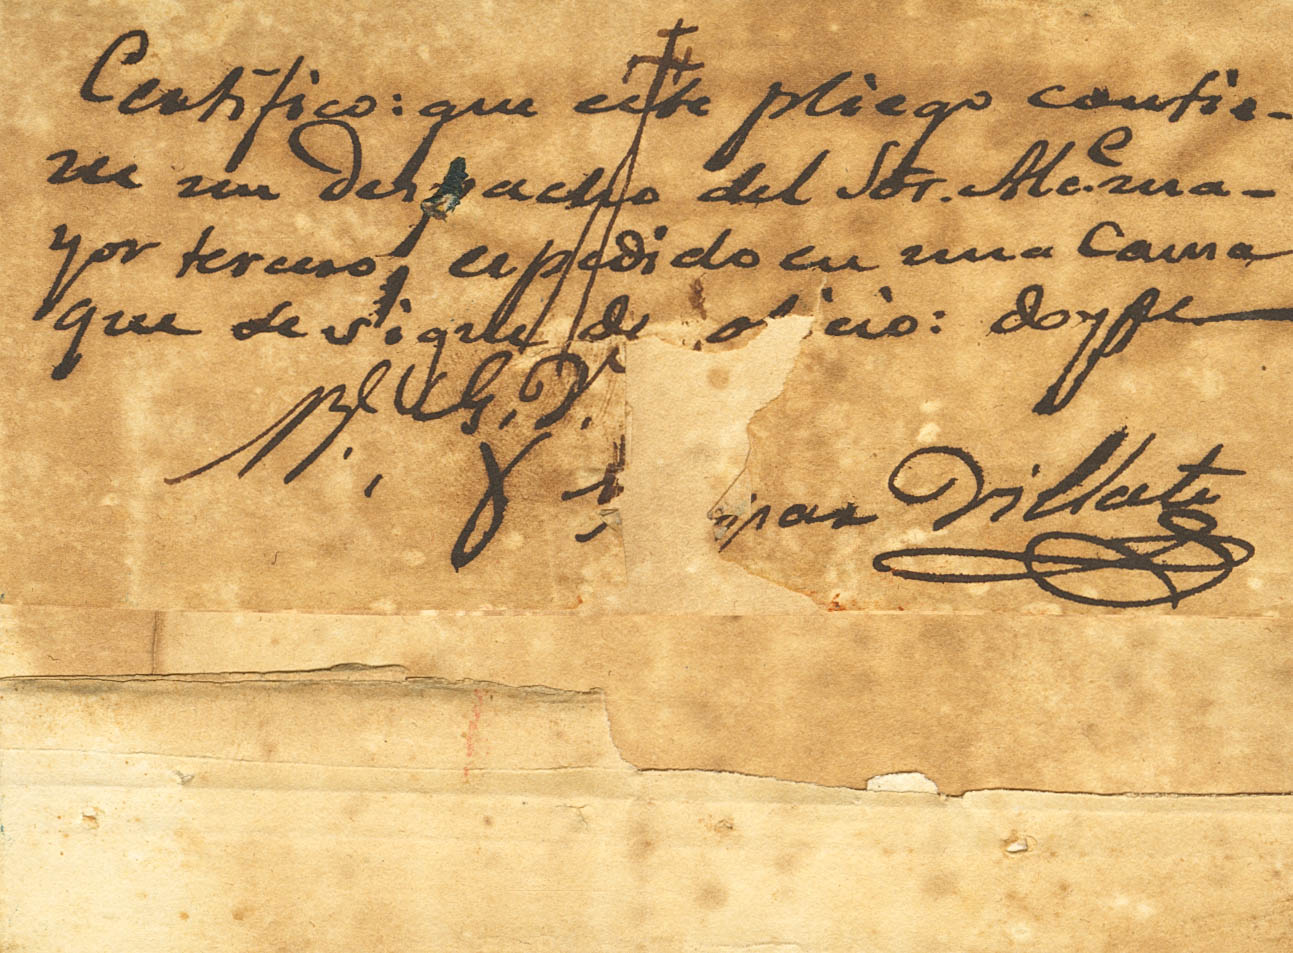 Certifico: que este pliego contie-
ne un Despacho del Sor. Alce. ma-
yor tercero, espedido en una Causa
que se sigue de oficio: doy fe
Villate